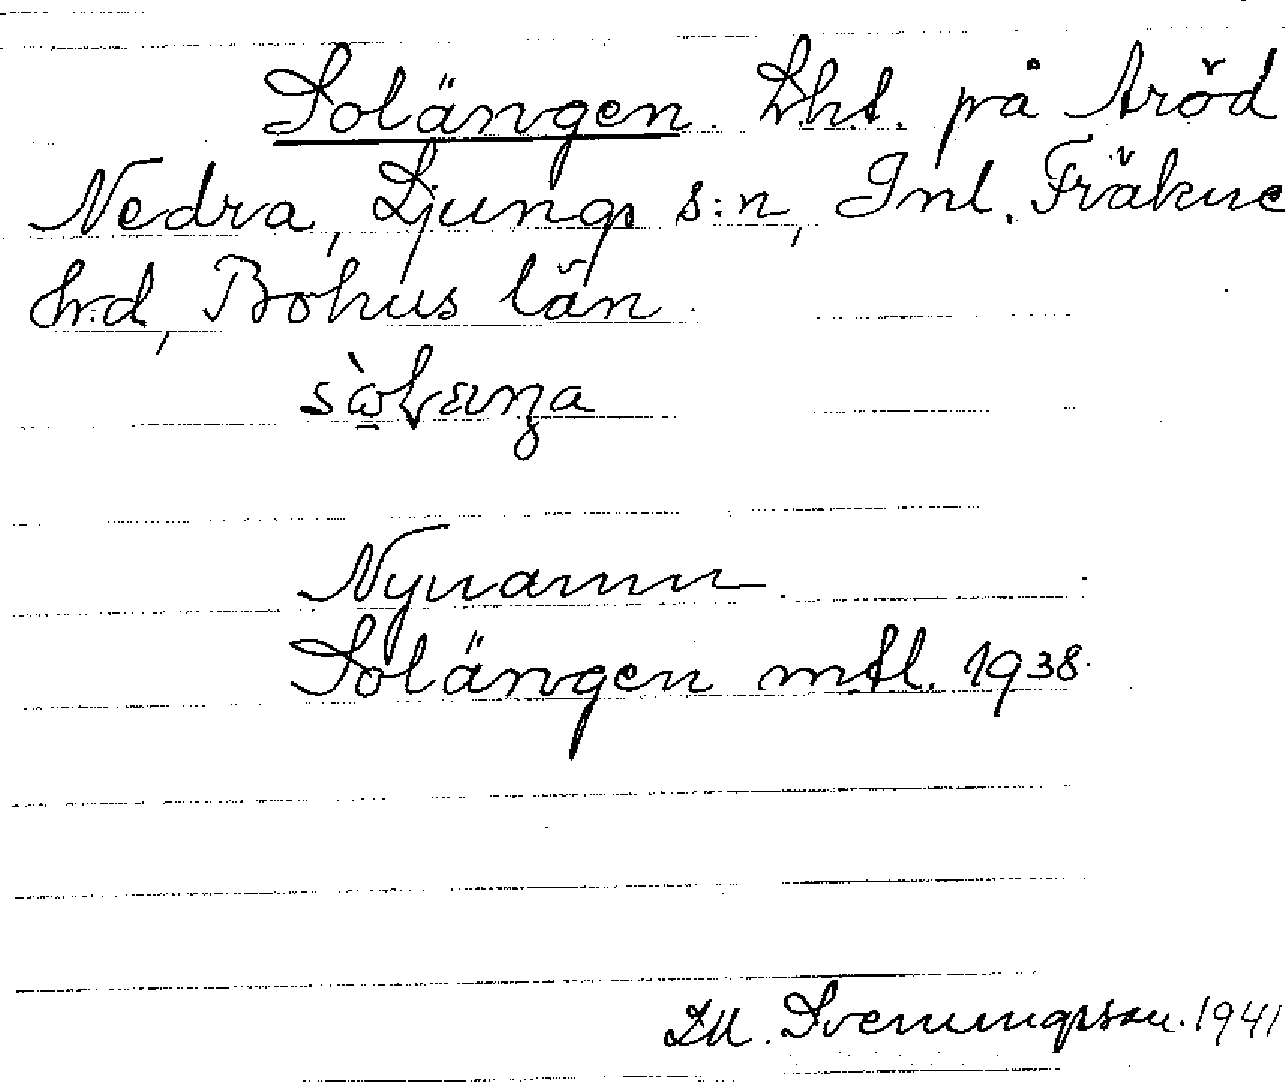 Solängen. Lht. på Aröd
Nedra, Ljungs s:n, Inl. Fräkne
hrd, Bohus län.
Nynamn.
Solängen mtl. 1938.
Svenungsson. 1941